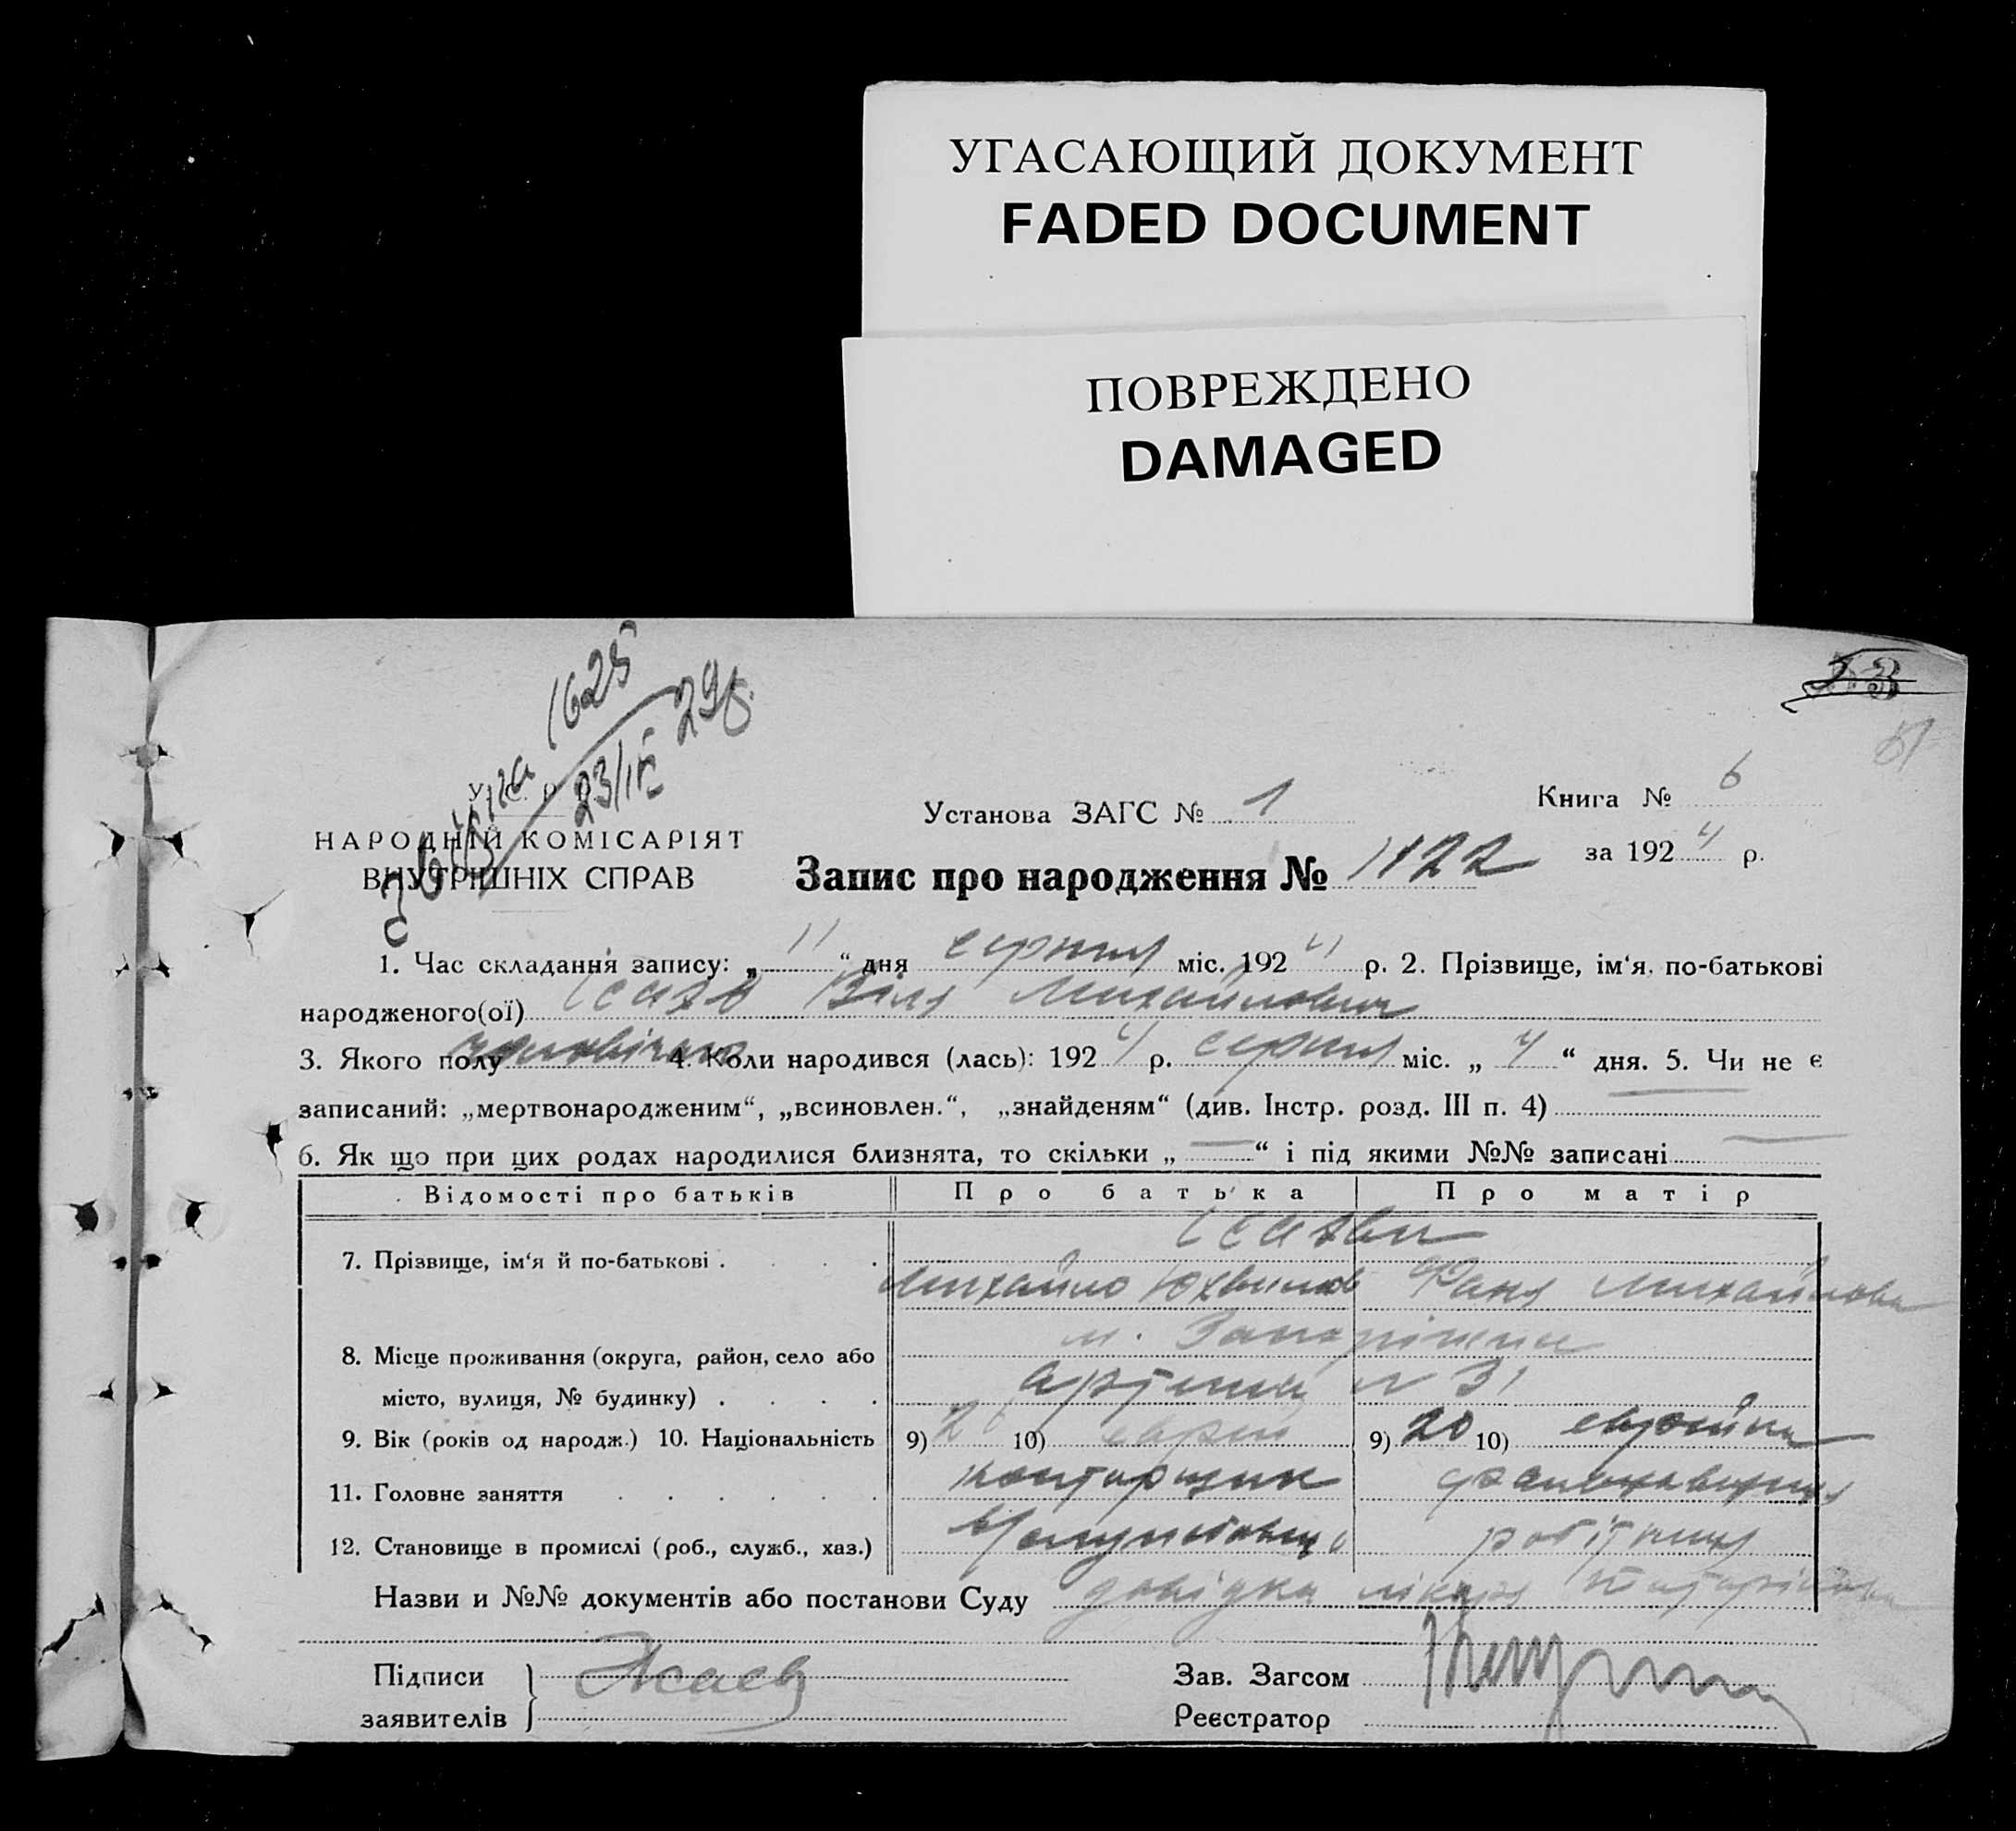 УГАСАЮЩИЙ ДОКУМЕНТ
FADED DOCUMENT
ПОВРЕЖДЕНО
DAMAGED
53
51
1625
23/ІІ 29р.
У. С. Р. Р.
НАРОДНІЙ КОМІСАРІЯТ
ВНУТРІШНІХ СПРАВ
Установа ЗАГС № 1
Книга № 6
за 1924 р.
Запис про народження № 1122
1. Час складання запису: „11“ дня серпня міс. 1924 р. 2. Прізвище, ім‘я, по-батькові
народженого(ої) Ісаєв Віля Михайлович
3. Якого полу чоловічого 4. Коли народився (лась): 1924 р. серпня міс. „4“ дня. 5. Чи не є
записаний: „мертвонародженим“, „всиновлен.“, „знайденям“ (див. Інстр. розд. III п. 4) —
6. Як що при цих родах народилися близнята, то скільки „—“ і під якими №№ записані —
Відомості про батьків Про батька Про матір
7. Прізвище, ім‘я й по-батькові . Ісаєви
Михайло Юхимов Фаня Михайлова
8. Місце проживання (округа, район, село або м. Запоріжжя
місто, вулиця, № будинку) . № 31
9. Вік (років од народж.) 10. Національність 9) 10) еврей 9) 20 10) еврейка
11. Головне заняття конторщик
12. Становище в промислі (роб., служб., хаз.) робітниця
Назви и №№ документів або постанови Суду довідка лікаря
Підписи заявителів } Исаев
Зав. Загсом
Реєстратор